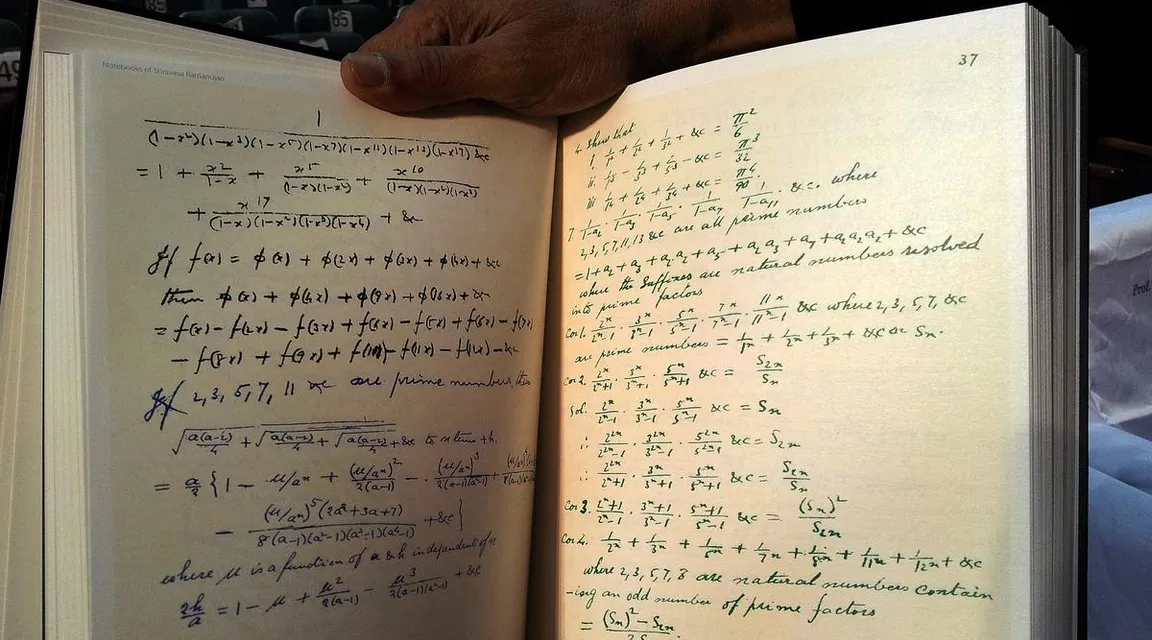 Notebooks of Srinivasa Ramanujan
1
(1-x²)(1-x³)(1-x⁵)(1-x⁷)(1-x¹¹)(1-x¹³)(1-x¹⁷) &c
= 1 + x²/(1-x) + x⁵/((1-x)(1-x²)) + x¹⁰/((1-x)(1-x²)(1-x³))
+ x¹⁷/((1-x)(1-x²)(1-x³)(1-x⁴)) + &c
If f(x) = φ(x) + φ(2x) + φ(3x) + φ(4x) + &c
then φ(x) + φ(4x) + φ(9x) + φ(16x) + &c
= f(x) - f(2x) - f(3x) + f(4x) - f(5x) + f(6x) - f(7x)
- f(8x) + f(9x) + f(10x) - f(11x) - f(12x) - &c
If 2, 3, 5, 7, 11 &c are prime numbers, then
√(a(a-2)/4 + √(a(a-2)/4 + √(a(a-2)/4 + &c to n terms + h.
= a/2 { 1 - μ/aⁿ + (μ/aⁿ)²/2(a-1) - (μ/aⁿ)³/2(a-1)(a²-1) +
- (μ/aⁿ)⁵(2a²+3a+7)/8(a-1)(a²-1)(a³-1)(a⁴-1) + &c }
where μ is a function of a & h independent of n
2h/a = 1 - μ + μ²/2(a-1) - μ³/2(a-1)(a²-1) + &c
37
4. Show that
i. 1/1² + 1/2² + 1/3² + &c = π²/6
ii. 1/1³ - 1/3³ + 1/5³ - &c = π³/32
iii. 1/1⁴ + 1/2⁴ + 1/3⁴ + &c = π⁴/90.
7. 1/(1-a₂) · 1/(1-a₃) · 1/(1-a₅) · 1/(1-a₇) · 1/(1-a₁₁) · &c. where
2, 3, 5, 7, 11, 13 &c are all prime numbers
= 1 + a₂ + a₃ + a₂a₂ + a₅ + a₂a₃ + a₇ + a₂a₂a₂ + &c
where the suffixes are natural numbers resolved
into prime factors
Cor 1. 2ⁿ/(2ⁿ-1) · 3ⁿ/(3ⁿ-1) · 5ⁿ/(5ⁿ-1) · 7ⁿ/(7ⁿ-1) · 11ⁿ/(11ⁿ-1) &c where 2, 3, 5, 7, &c
are prime numbers = 1/1ⁿ + 1/2ⁿ + 1/3ⁿ + &c or Sₙ.
Cor 2. 2ⁿ/(2ⁿ+1) · 3ⁿ/(3ⁿ+1) · 5ⁿ/(5ⁿ+1) &c = S₂ₙ/Sₙ
Sol. 2ⁿ/(2ⁿ-1) · 3ⁿ/(3ⁿ-1) · 5ⁿ/(5ⁿ-1) &c = Sₙ
∴ 2²ⁿ/(2²ⁿ-1) · 3²ⁿ/(3²ⁿ-1) · 5²ⁿ/(5²ⁿ-1) &c = S₂ₙ
∴ 2ⁿ/(2ⁿ+1) · 3ⁿ/(3ⁿ+1) · 5ⁿ/(5ⁿ+1) &c = S₂ₙ/Sₙ
Cor 3. (2ⁿ+1)/(2ⁿ-1) · (3ⁿ+1)/(3ⁿ-1) · (5ⁿ+1)/(5ⁿ-1) &c = (Sₙ)²/S₂ₙ
Cor 4. 1/2ⁿ + 1/3ⁿ + 1/5ⁿ + 1/7ⁿ + 1/8ⁿ + 1/11ⁿ + 1/12ⁿ + &c
where 2, 3, 5, 7, 8 are natural numbers contain
-ing an odd number of prime factors
= ((Sₙ)² - S₂ₙ)/2Sₙ.
85
49
Prof.